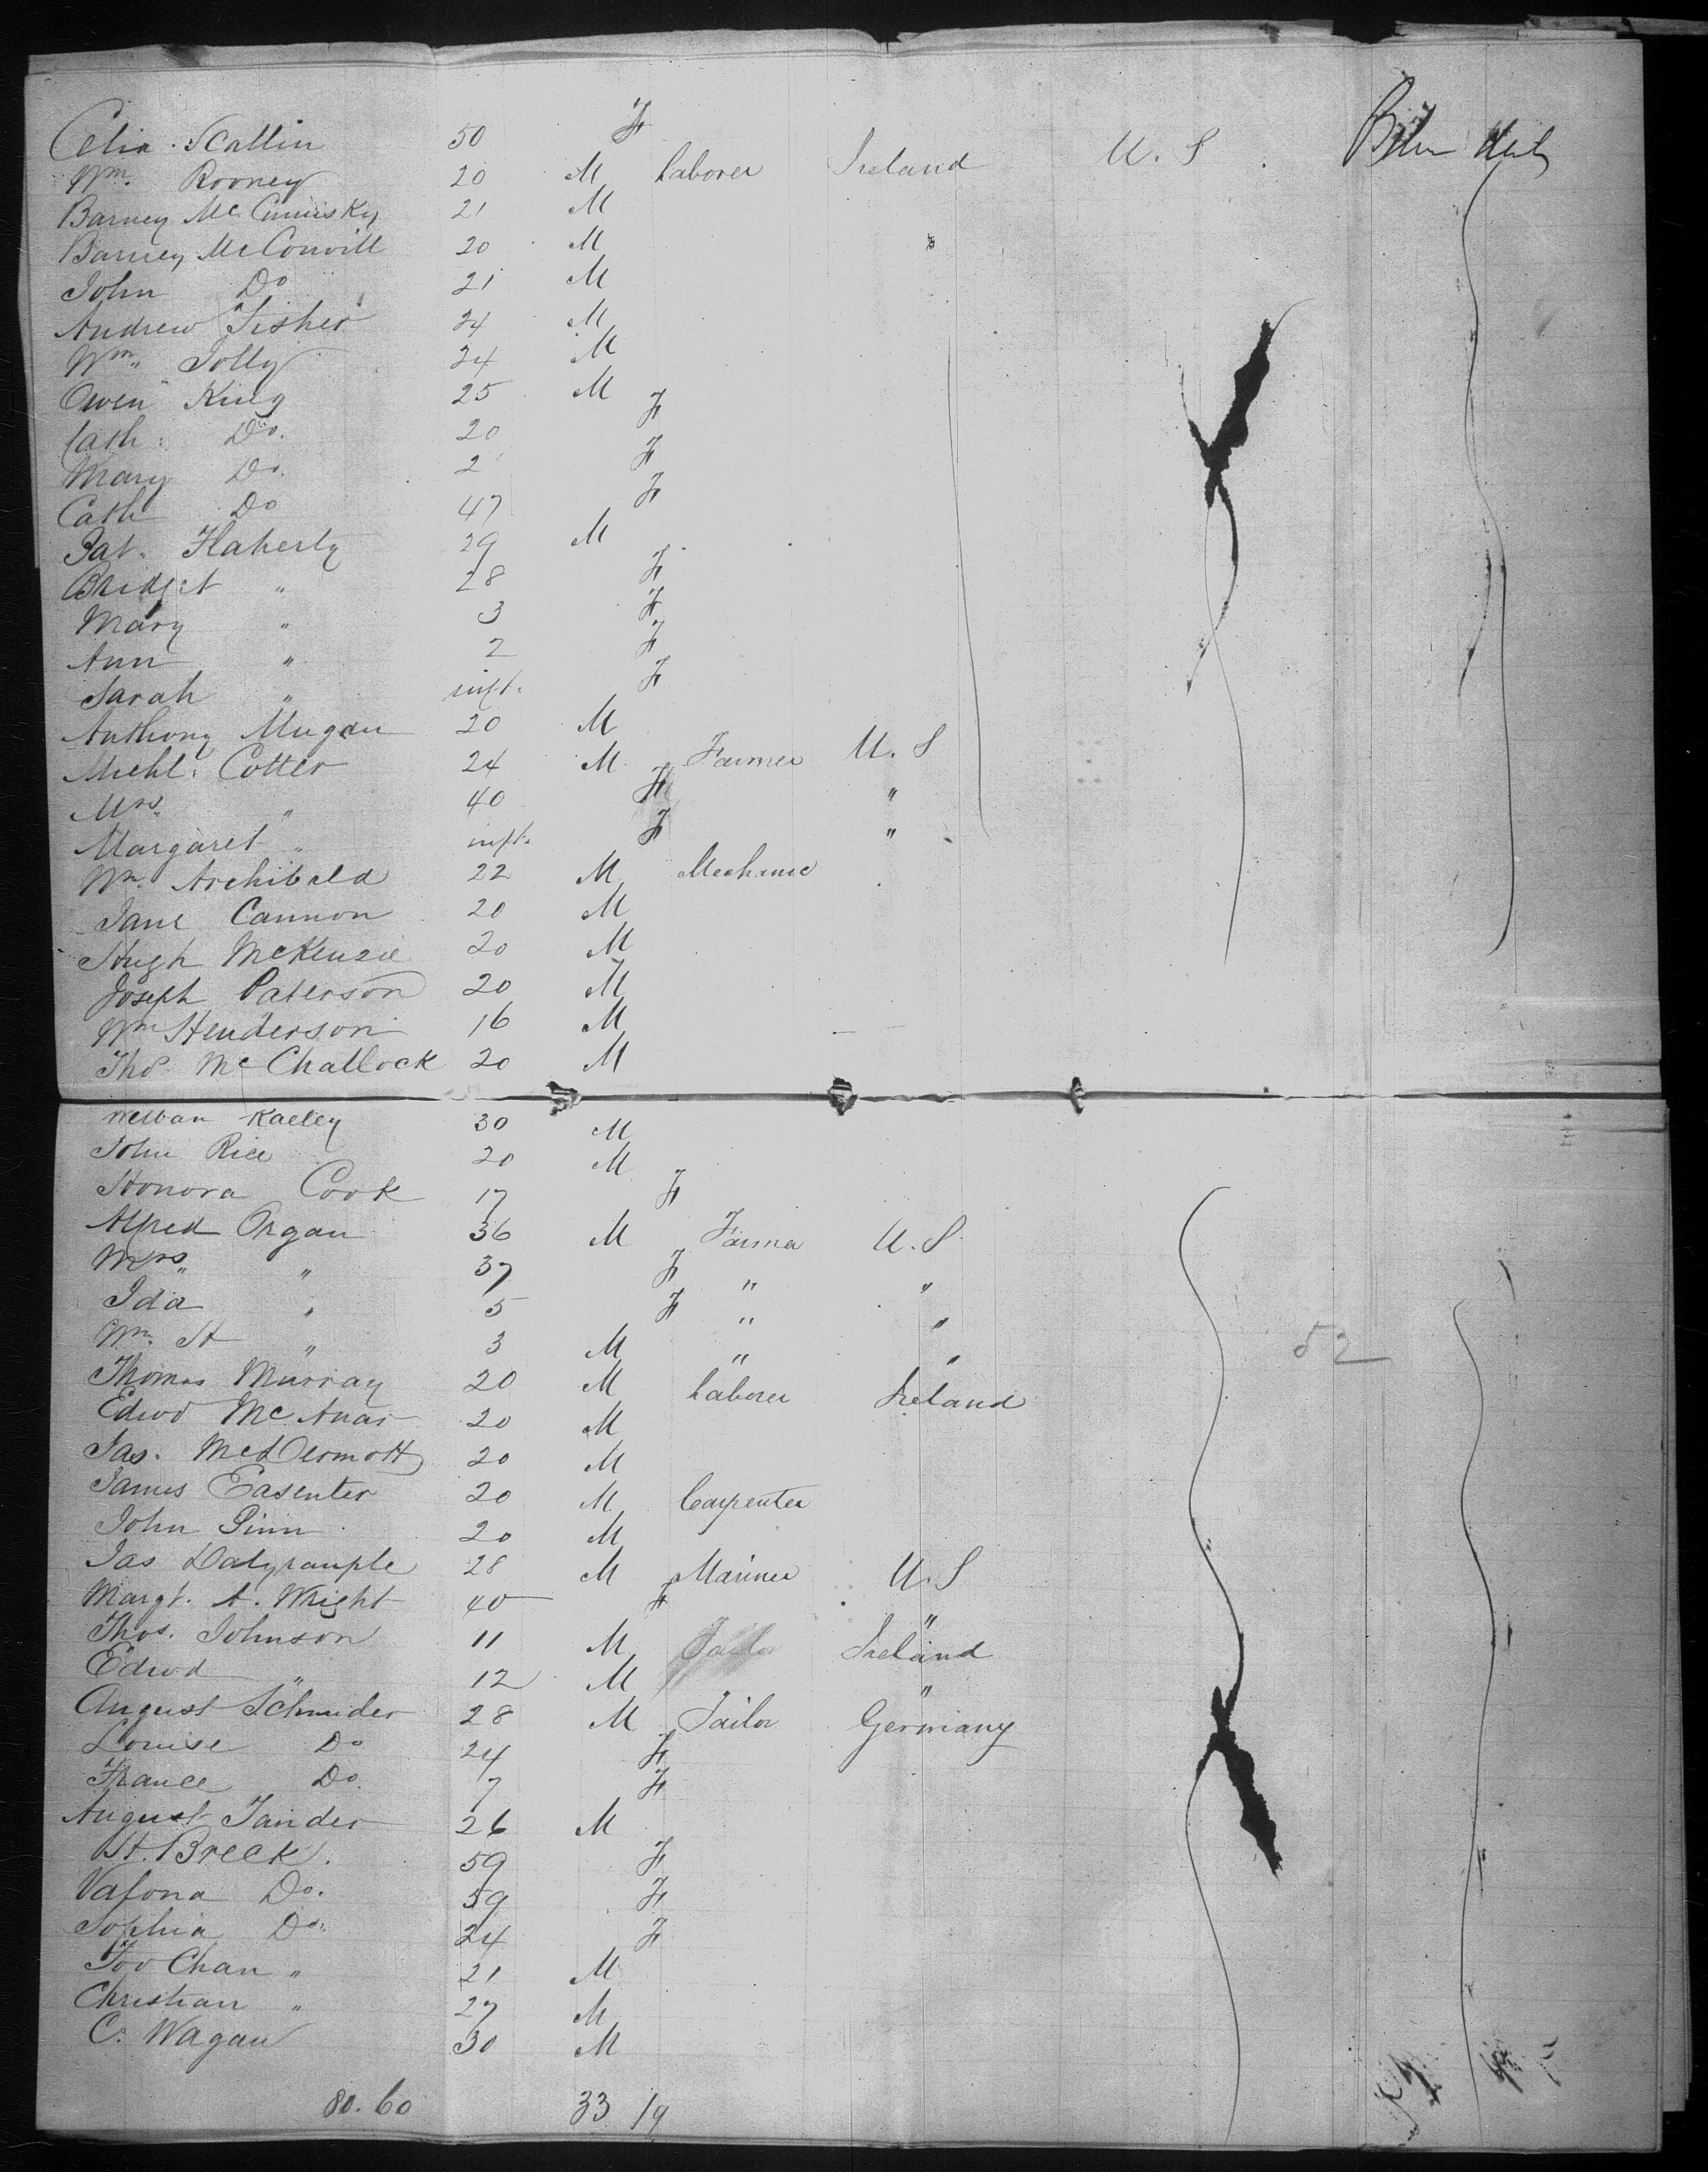 Celia Scallin 50 F
Wm. Rooney 20 M Laborer Ireland U.S.
Barney McCumisky 21 M
Barney McConvill 20 M
John Do 21 M
Andrew Fisher 24 M
Wm. Jolly 24 M
Owen King 25 M
Cath: Do. 20 F
Mary Do. 2 F
Cath Do 47 F
Pat. Flaherty 29 M
Bridget " 28 F
Mary " 3 F
Ann " 2 F
Sarah " inft. F
Anthony Mugan 20 M
Michl. Cotter 24 M Farmer U.S
Mrs. " 40 F "
Margaret " inft. F "
Wm. Archibald 22 M Mechanic
Jane Cannon 20 M
Hugh McKenzie 20 M
Joseph Paterson 20 M
Wm Henderson 16 M
Thos. McChallock 20 M
Kaeley 30 M
John Rice 20 M
Honora Cook 17 F
Alfred Organ 36 M Farmer U.S.
Mrs " 37 F " "
Ida " 5 F " "
Wm. H " 3 M " "
52
Thomas Murray 20 M Laborer Ireland
Edwd McAnar 20 M
Jas. McDermott 20 M
James Easenter 20 M Carpenter
John Pinn 20 M
Jas Dalyrample 28 M Mariner U.S
Margt. A. Wright 40 F "
Thos. Johnson 11 M Ireland
Edwd " 12 M "
August Schnider 28 M Tailor Germany
Louise Do 24 F
France Do. 7 F
August Jander 26 M
H. Breck. 59 F
Vafona Do. 59 F
Sophia Do. 24 F
Foo Chan " 21 M
Christian " 27 M
C. Wagan 30 M
80.60 33 19